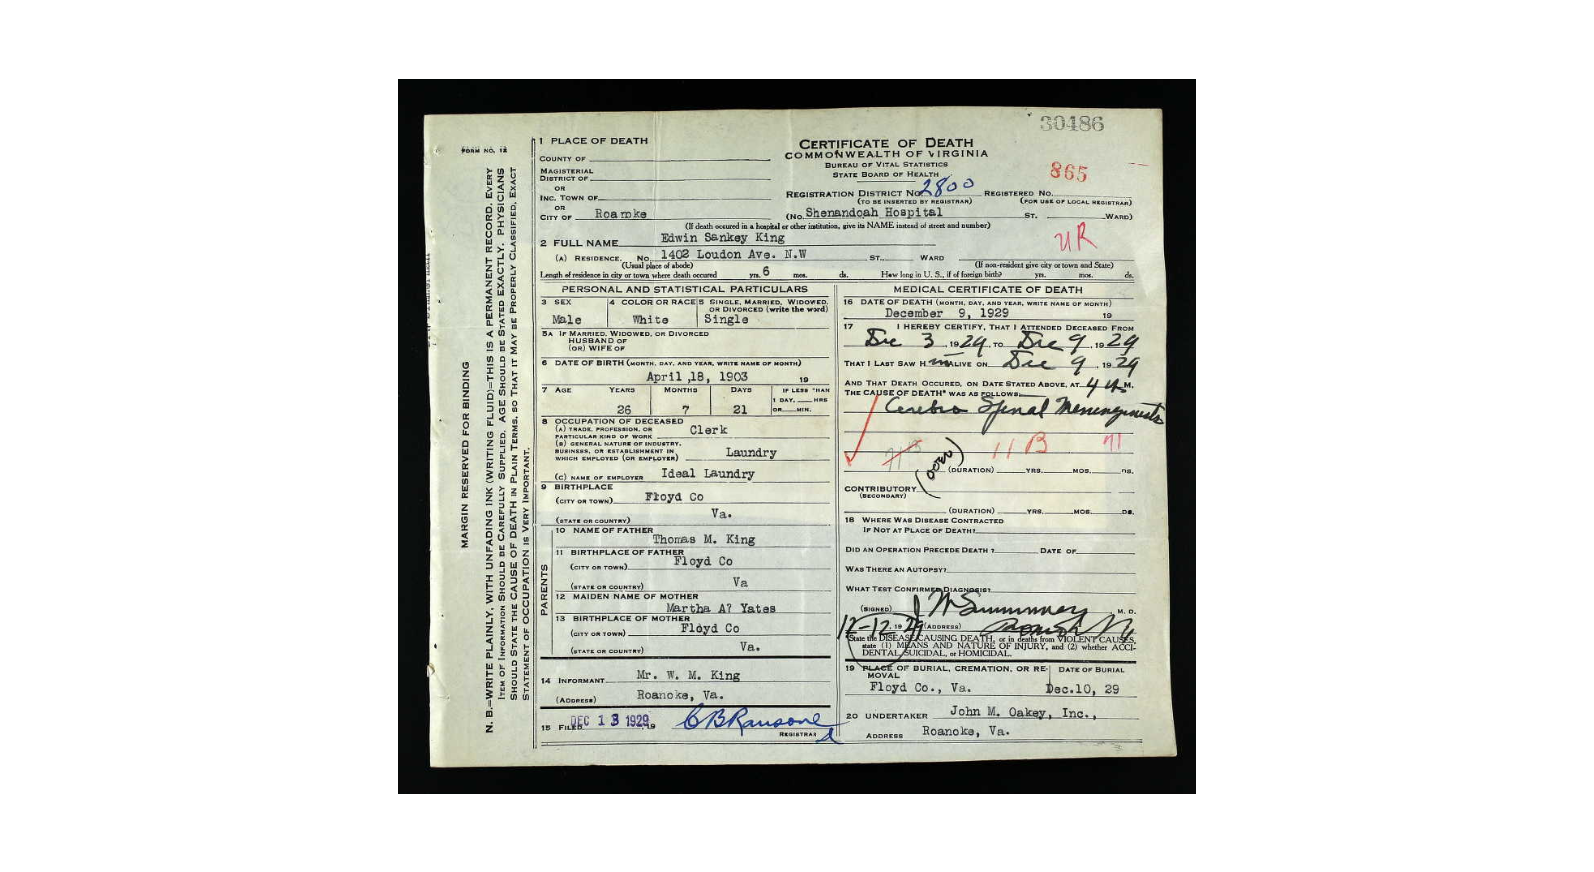 30486
FORM NO. 12
1 PLACE OF DEATH
COUNTY OF
MAGISTERIAL
DISTRICT OF
OR
INC. TOWN OF
OR
CITY OF Roanoke
CERTIFICATE OF DEATH
COMMONWEALTH OF VIRGINIA
BUREAU OF VITAL STATISTICS
STATE BOARD OF HEALTH
865
REGISTRATION DISTRICT NO. 2800 REGISTERED NO.
(TO BE INSERTED BY REGISTRAR) (FOR USE OF LOCAL REGISTRAR)
(No. Shenandoah Hospital ST. WARD)
(If death occured in a hospital or other institution, give its NAME instead of street and number)
UR
2 FULL NAME Edwin Sankey King
(A) RESIDENCE. No. 1402 Loudon Ave. N.W ST. WARD
(Usual place of abode) (If non-resident give city or town and State)
Length of residence in city or town where death occured yrs. 6 mos. ds. How long in U. S., if of foreign birth? yrs. mos. ds.
PERSONAL AND STATISTICAL PARTICULARS
3 SEX 4 COLOR OR RACE 5 SINGLE, MARRIED, WIDOWED,
OR DIVORCED (write the word)
Male White Single
5A IF MARRIED, WIDOWED, OR DIVORCED
HUSBAND OF
(OR) WIFE OF
6 DATE OF BIRTH (MONTH, DAY, AND YEAR, WRITE NAME OF MONTH)
April ,18, 1903 19
7 AGE YEARS MONTHS DAYS IF LESS THAN
1 DAY, HRS
26 7 21 OR MIN.
8 OCCUPATION OF DECEASED
(A) TRADE, PROFESSION, OR
PARTICULAR KIND OF WORK Clerk
(B) GENERAL NATURE OF INDUSTRY,
BUSINESS, OR ESTABLISHMENT IN
WHICH EMPLOYED (OR EMPLOYER) Laundry
(C) NAME OF EMPLOYER Ideal Laundry
9 BIRTHPLACE
(CITY OR TOWN) Floyd Co
(STATE OR COUNTRY) Va.
PARENTS
10 NAME OF FATHER
Thomas M. King
11 BIRTHPLACE OF FATHER
(CITY OR TOWN) Floyd Co
(STATE OR COUNTRY) Va
12 MAIDEN NAME OF MOTHER
Martha A? Yates
13 BIRTHPLACE OF MOTHER
(CITY OR TOWN) Floyd Co
(STATE OR COUNTRY) Va.
14 INFORMANT Mr. W. M. King
(ADDRESS) Roanoke, Va.
15 FILED DEC 13 1929 19 C B Ransone
REGISTRAR
MEDICAL CERTIFICATE OF DEATH
16 DATE OF DEATH (MONTH, DAY, AND YEAR, WRITE NAME OF MONTH)
December 9, 1929 19
17 I HEREBY CERTIFY, THAT I ATTENDED DECEASED FROM
Dec 3, 1929, TO Dec 9, 1929
THAT I LAST SAW HIM ALIVE ON Dec 9, 1929
AND THAT DEATH OCCURED, ON DATE STATED ABOVE, AT 4 A M.
THE CAUSE OF DEATH* WAS AS FOLLOWS:
Cerebro Spinal Meningnests
11 B
(over)
(DURATION) YRS. MOS. DS.
CONTRIBUTORY
(SECONDARY)
(DURATION) YRS. MOS. DS.
18 WHERE WAS DISEASE CONTRACTED
IF NOT AT PLACE OF DEATH?
DID AN OPERATION PRECEDE DEATH? DATE OF
WAS THERE AN AUTOPSY?
WHAT TEST CONFIRMED DIAGNOSIS?
(SIGNED) M. D.
12-12, 1929 (ADDRESS)
State the DISEASE CAUSING DEATH, or in deaths from VIOLENT CAUSES,
state (1) MEANS AND NATURE OF INJURY, and (2) whether ACCI-
DENTAL, SUICIDAL, or HOMICIDAL.
19 PLACE OF BURIAL, CREMATION, OR RE- DATE OF BURIAL
MOVAL
Floyd Co., Va. Dec.10, 29
20 UNDERTAKER John M. Oakey, Inc.,
ADDRESS Roanoke, Va.
MARGIN RESERVED FOR BINDING
N. B.—WRITE PLAINLY, WITH UNFADING INK (WRITING FLUID)—THIS IS A PERMANENT RECORD. EVERY
ITEM OF INFORMATION SHOULD BE CAREFULLY SUPPLIED. AGE SHOULD BE STATED EXACTLY. PHYSICIANS
SHOULD STATE THE CAUSE OF DEATH IN PLAIN TERMS, SO THAT IT MAY BE PROPERLY CLASSIFIED. EXACT
STATEMENT OF OCCUPATION IS VERY IMPORTANT.